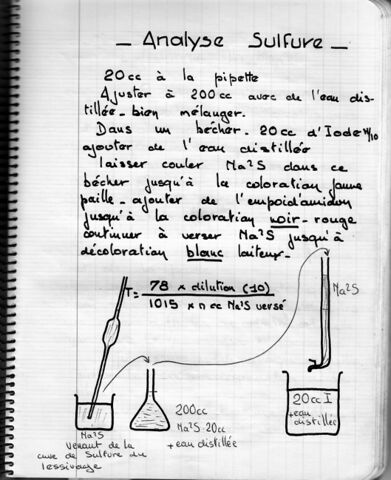 _ Analyse Sulfure _
20cc à la pipette
Ajuster à 200cc avec de l'eau dis-
tillée - bien mélanger.
Dans un bécher - 20cc d'Iode N/10
ajouter de l'eau distillée
laisser couler Na²S dans ce
bécher jusqu'à la coloration jaune
paille - ajouter de l'empois d'amidon
jusqu'à la coloration noir - rouge
continuer à verser Na²S jusqu'à
décoloration blanc laiteux -
T = 78 x dilution (10)
1015 x n cc Na²S versé
Na²S
20cc I
+ eau
distillée
200cc
Na²S - 20cc
+ eau distillée
Na²S
venant de la
cuve de Sulfure du
lessivage